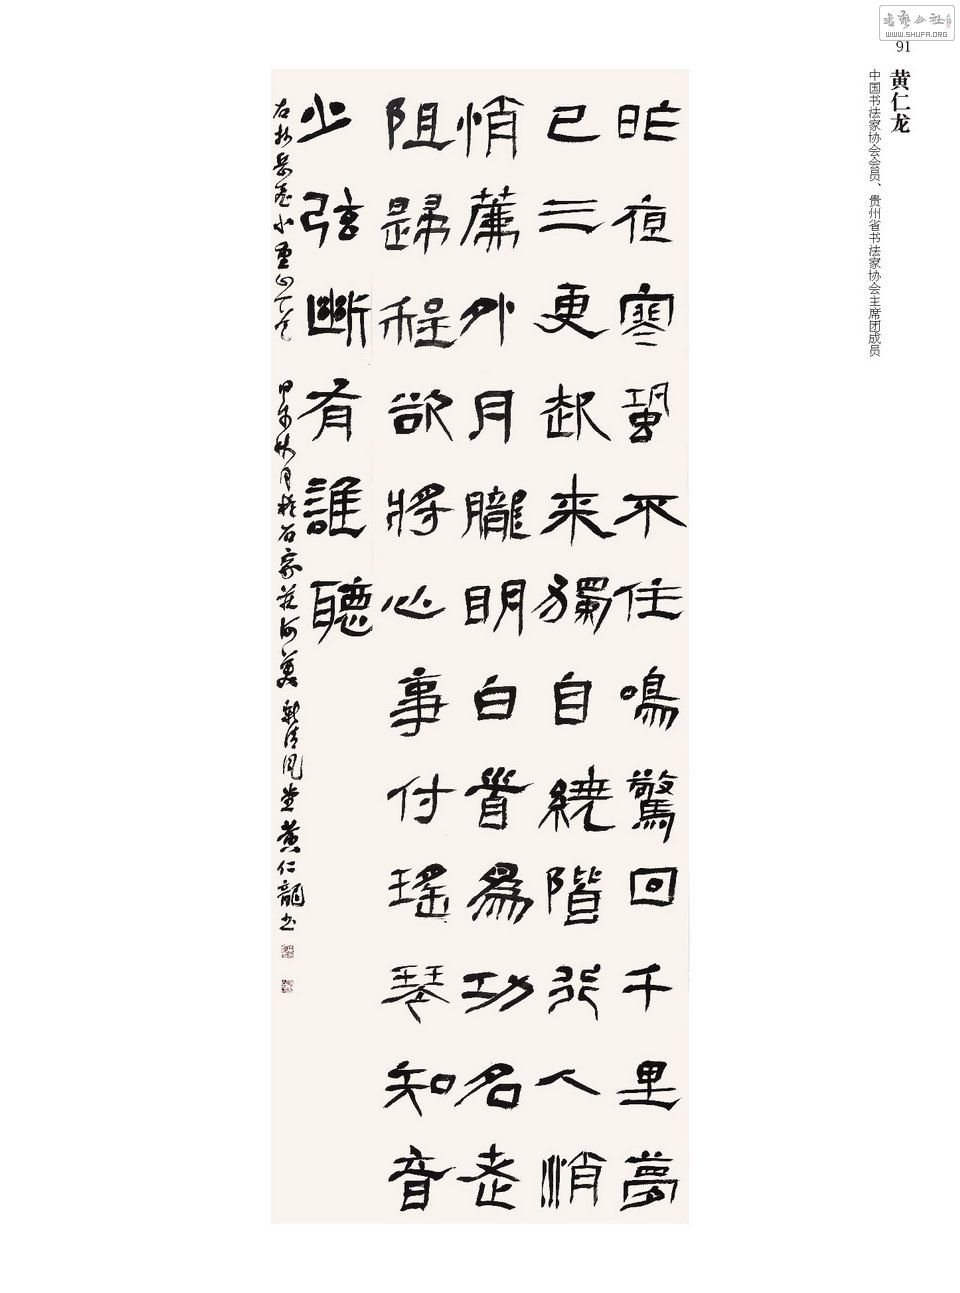 書藝公社
WWW.SHUFA.ORG
91
黄仁龙
中国书法家协会会员、贵州省书法家协会主席团成员
昨夜寒蛩不住鳴驚回千里夢
已三更起来獨自繞階行人悄
悄簾外月朧明白首爲功名老
阻歸程欲將心事付瑤琴知音
少弦斷有誰聽
右抄岳飛小重山 甲午秋月於石家莊河美 清風堂黄仁龍书